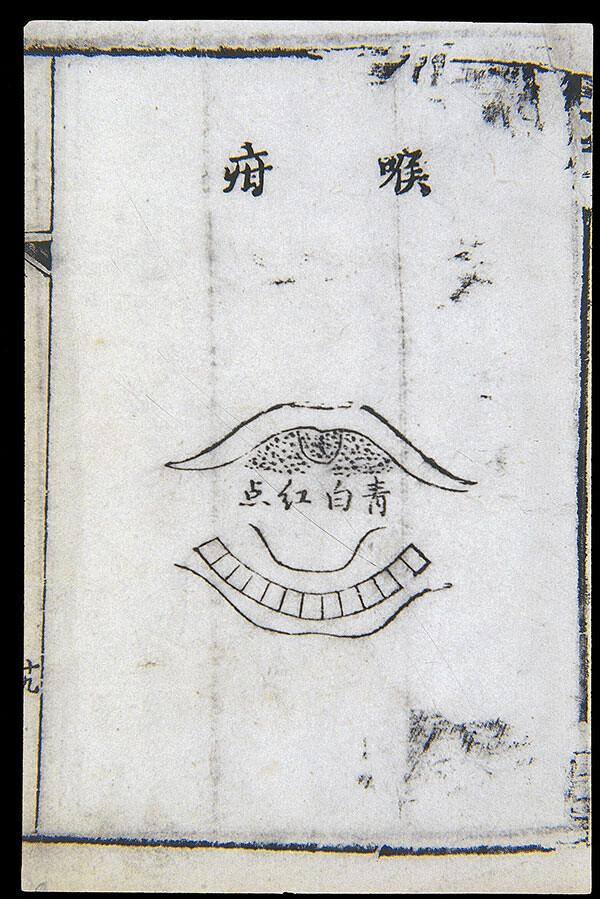 喉疳
青白红点